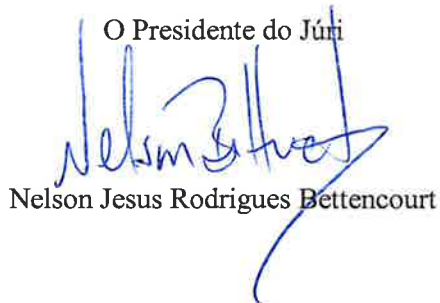 O Presidente do Júri
Nelson Bettencourt
Nelson Jesus Rodrigues Bettencourt